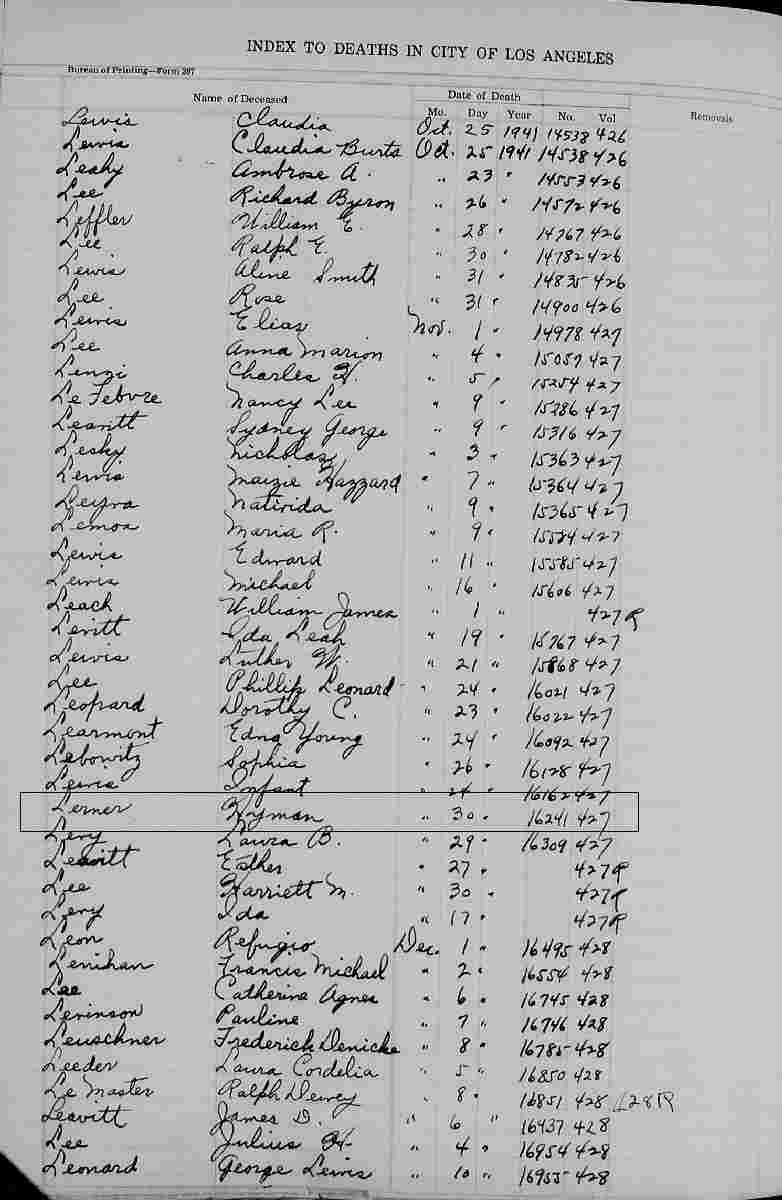 INDEX TO DEATHS IN CITY OF LOS ANGELES
Bureau of Printing—Form 207
Name of Deceased Date of Death
Mo. Day Year No. Vol Removals
Lewis Claudia Oct. 25 1941 14538 426
Lewis Claudia Burts Oct. 25 1941 14538 426
Leahy Ambrose A. " 23 " 14553 426
Lee Richard Byron " 26 " 14572 426
Leffler William E. " 28 " 14767 426
Lee Ralph E. " 30 " 14782 426
Lewis Aline Smith " 31 " 14835 426
Lee Rose " 31 " 14900 426
Lewis Elias Nov. 1 " 14978 427
Lee Anna Marion " 4 " 15057 427
Lenzi Charles H. " 5 " 15254 427
Le Febvre Nancy Lee " 9 " 15286 427
Leavitt Sydney George " 9 " 15316 427
Lesky Nicholas " 3 " 15363 427
Lewis Maizie Hazzard " 7 " 15364 427
Leyva Natirida " 9 " 15365 427
Lemos Maria R. " 9 " 15584 427
Lewis Edward " 11 " 15585 427
Lewis Michael " 16 " 15606 427
Leach William James " 1 " 427 R
Levitt Ida Leah " 19 " 15767 427
Lewis Luther W. " 21 " 15868 427
Lee Phillip Leonard " 24 " 16021 427
Leopard Dorothy C. " 23 " 16022 427
Learmont Edna Young " 24 " 16092 427
Lebowitz Sophia " 26 " 16128 427
Lewis Infant " 24 " 16162 427
Lerner Hyman " 30 " 16241 427
Levy Laura B. " 29 " 16309 427
Leavitt Esther " 27 " 427R
Lee Harriett M. " 30 " 427R
Levy Ida " 17 " 427R
Leon Refugio Dec. 1 " 16495 428
Lenihan Francis Michael " 2 " 16554 428
Lee Catherine Agnes " 6 " 16745 428
Levinson Pauline " 7 " 16746 428
Leuschner Frederick Denicke " 8 " 16785 428
Leeder Laura Cordelia " 5 " 16850 428
Le Master Ralph Dewey " 8 " 16851 428 428R
Leavitt James D. " 6 " 16937 428
Lee Julius H. " 4 " 16954 428
Leonard George Lewis " 10 " 16955 428